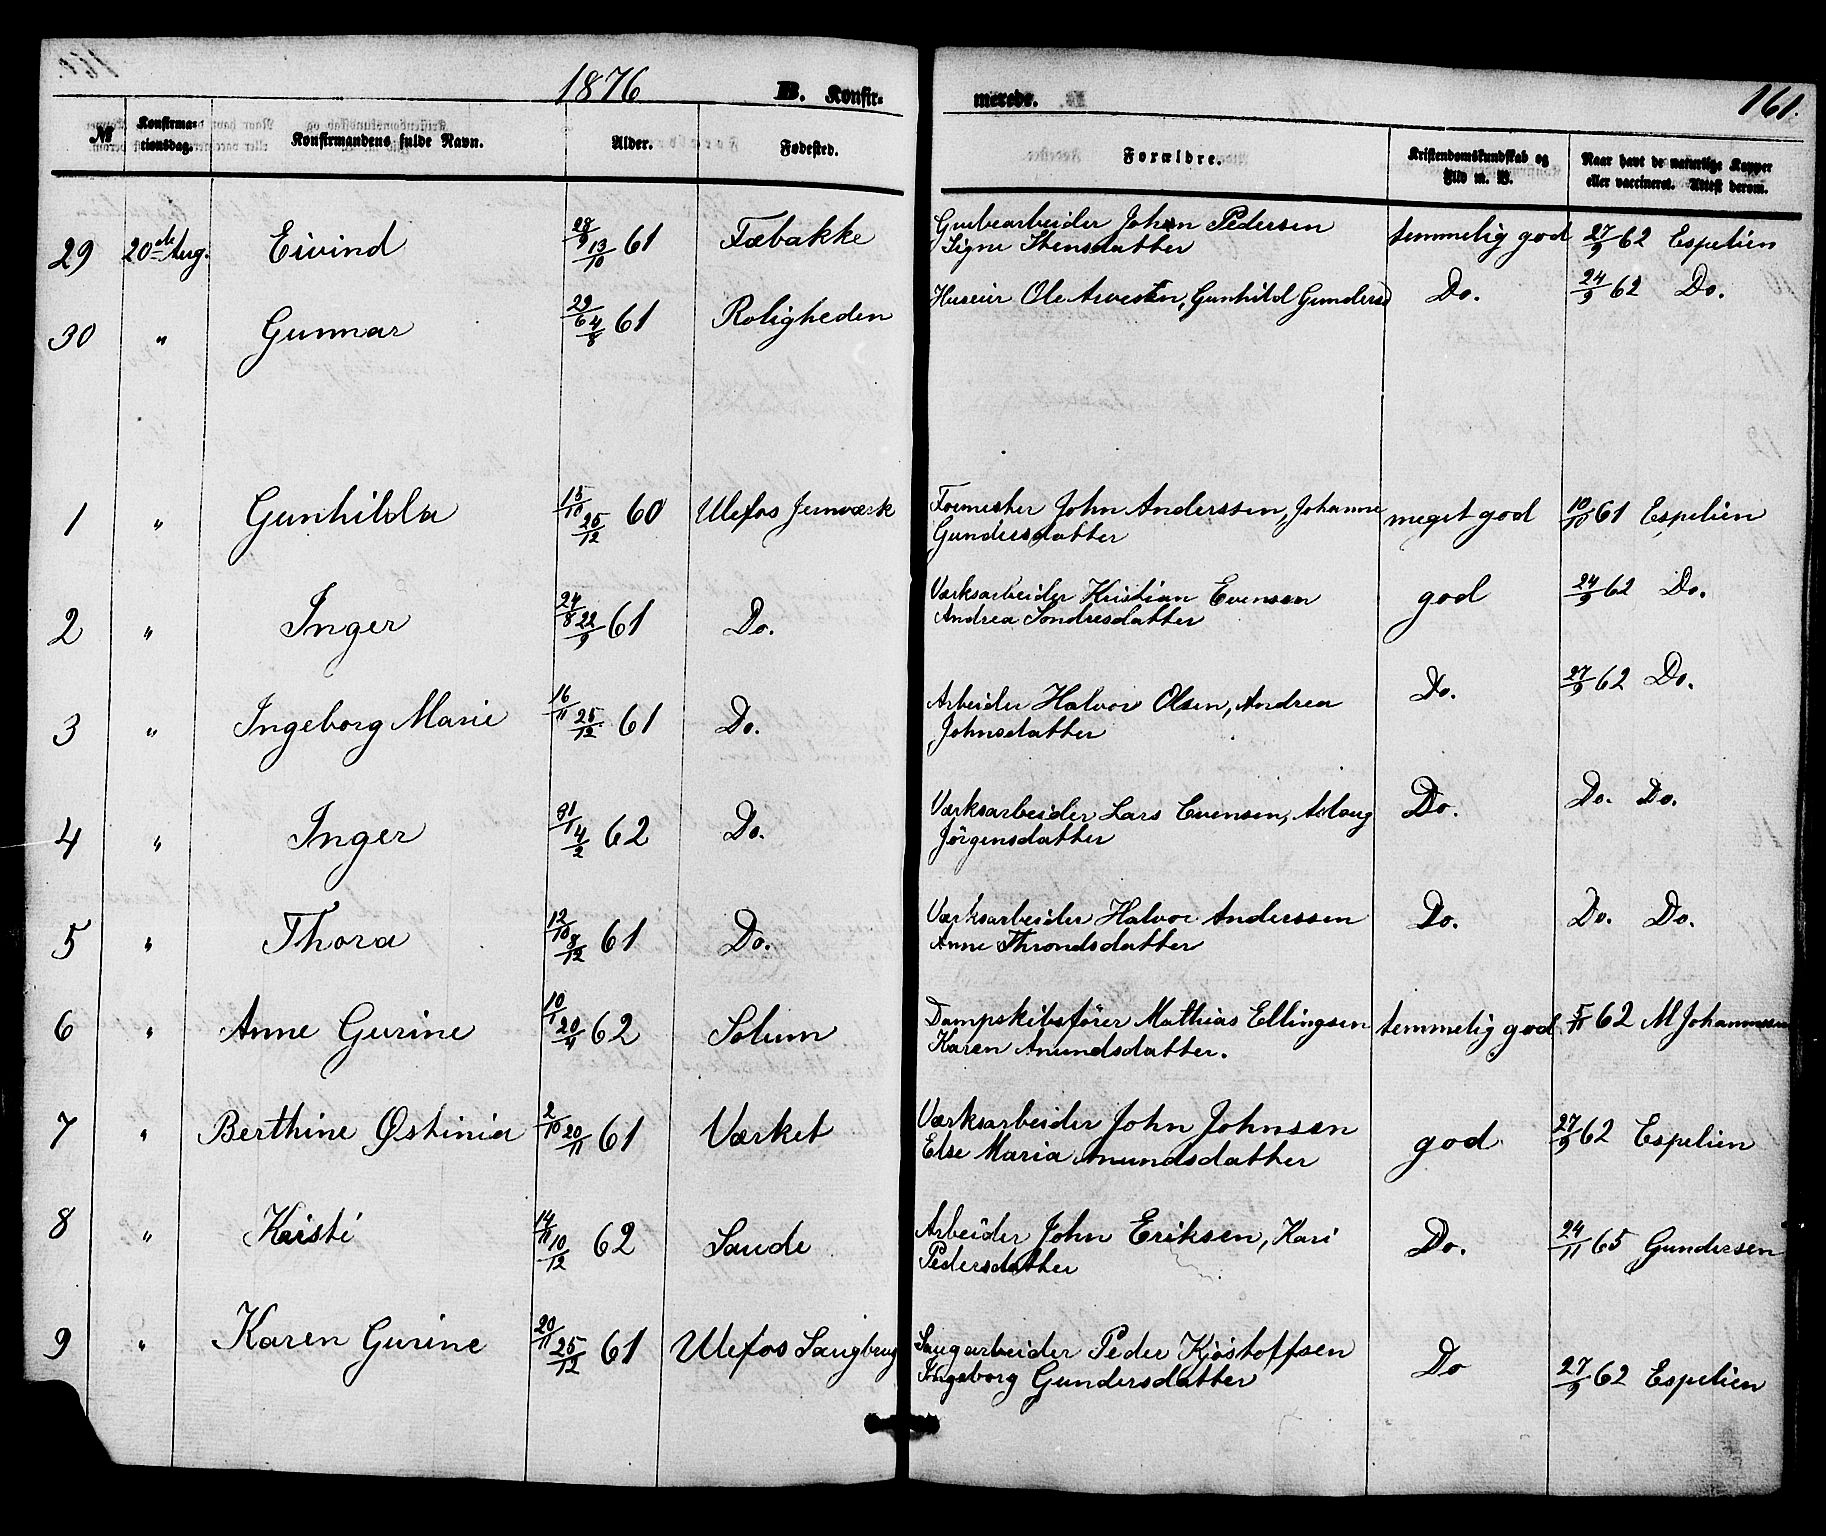 1876 B. Konfir- merede. 161.
№ Konfirma- tionsdag. Konfirmandens fulde Navn. Alder. Fødested. Forældre. Kristendomskundskab og Flid m. V. Naar havt de naturlige Kopper eller vaccineret. Attest derom.
29 20de Aug. Eivind 28/9 13/10 61 Fæbakke Grubearbeider Johan Pedersen temmelig god 27/9 62 Espelien
Signe Stensdatter
30 " Gunnar 29/6 4/8 61 Roligheden Huseier Ole Arvesen, Gunhild Gundersd Do. 24/9 62 Do.
1 " Gunhilda 15/10 25/12 60 Ulefos Jernværk Formester John Anderssen, Johanne meget god 10/10 61 Espelien
Gundersdatter
2 " Inger 24/8 22/9 61 Do. Værksarbeider Kristian Evensen god 24/9 62 Do.
Andrea Sondresdatter
3 " Ingeborg Marie 16/11 25/12 61 Do. Arbeider Halvor Olsen, Andrea Do. 27/9 62 Do.
Johnsdatter
4 " Inger 31/1 4/2 62 Do. Værksarbeider Lars Evensen, Aslaug Do. Do. Do.
Jörgensdatter
5 " Thora 12/10 8/12 61 Do. Værksarbeider Halvor Anderssen Do. Do. Do.
Anne Throndsdatter
6 " Anne Gurine 10/1 20/4 62 Solum Dampskibsförer Mathias Ellingsen temmelig god 5/11 62 M Johannessen
Karen Anundsdatter.
7 " Berthine Østinia 2/10 20/11 61 Værket Værksarbeider John Johnsen god 27/9 62 Espelien
Else Maria Anundsdatter
8 " Kristi 14/11 10/12 62 Saude Arbeider John Eriksen, Kari Do. 24/11 65 Gundersen
Pedersdatter
9 " Karen Gurine 20/11 25/12 61 Ulefos Saugbrug Saugarbeider Peder Kjöstoffsen Do 27/9 62 Espelien
Ingeborg Gundersdatter